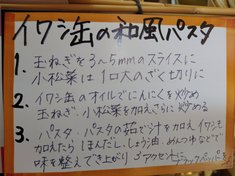 イワシ缶の和風パスタ
1. 玉ねぎを3~5mmのスライスに
小松菜は1口大のざく切りに
2. イワシ缶のオイルでにんにくを炒め
玉ねぎ、小松菜を加えさらに炒める
3. パスタ、パスタの茹で汁を加え イワシも
加えたら ほんだし、しょう油、めんつゆなどで
味を整えでき上がり アクセントにブラックペッパーを